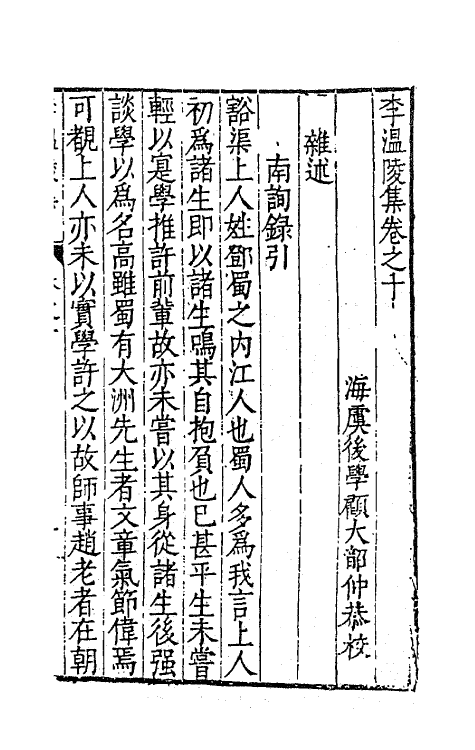 李溫陵集卷之十
海虞後學顧大韶仲恭校
雜述
南詢錄引
豁渠上人姓鄧蜀之內江人也蜀人多爲我言上人
初爲諸生即以諸生鳴其自抱負也已甚平生未嘗
輕以寔學推許前輩故亦未嘗以其身從諸生後强
談學以爲名高雖蜀有大洲先生者文章氣節偉焉
可觀上人亦未以實學許之以故師事趙老者在朝